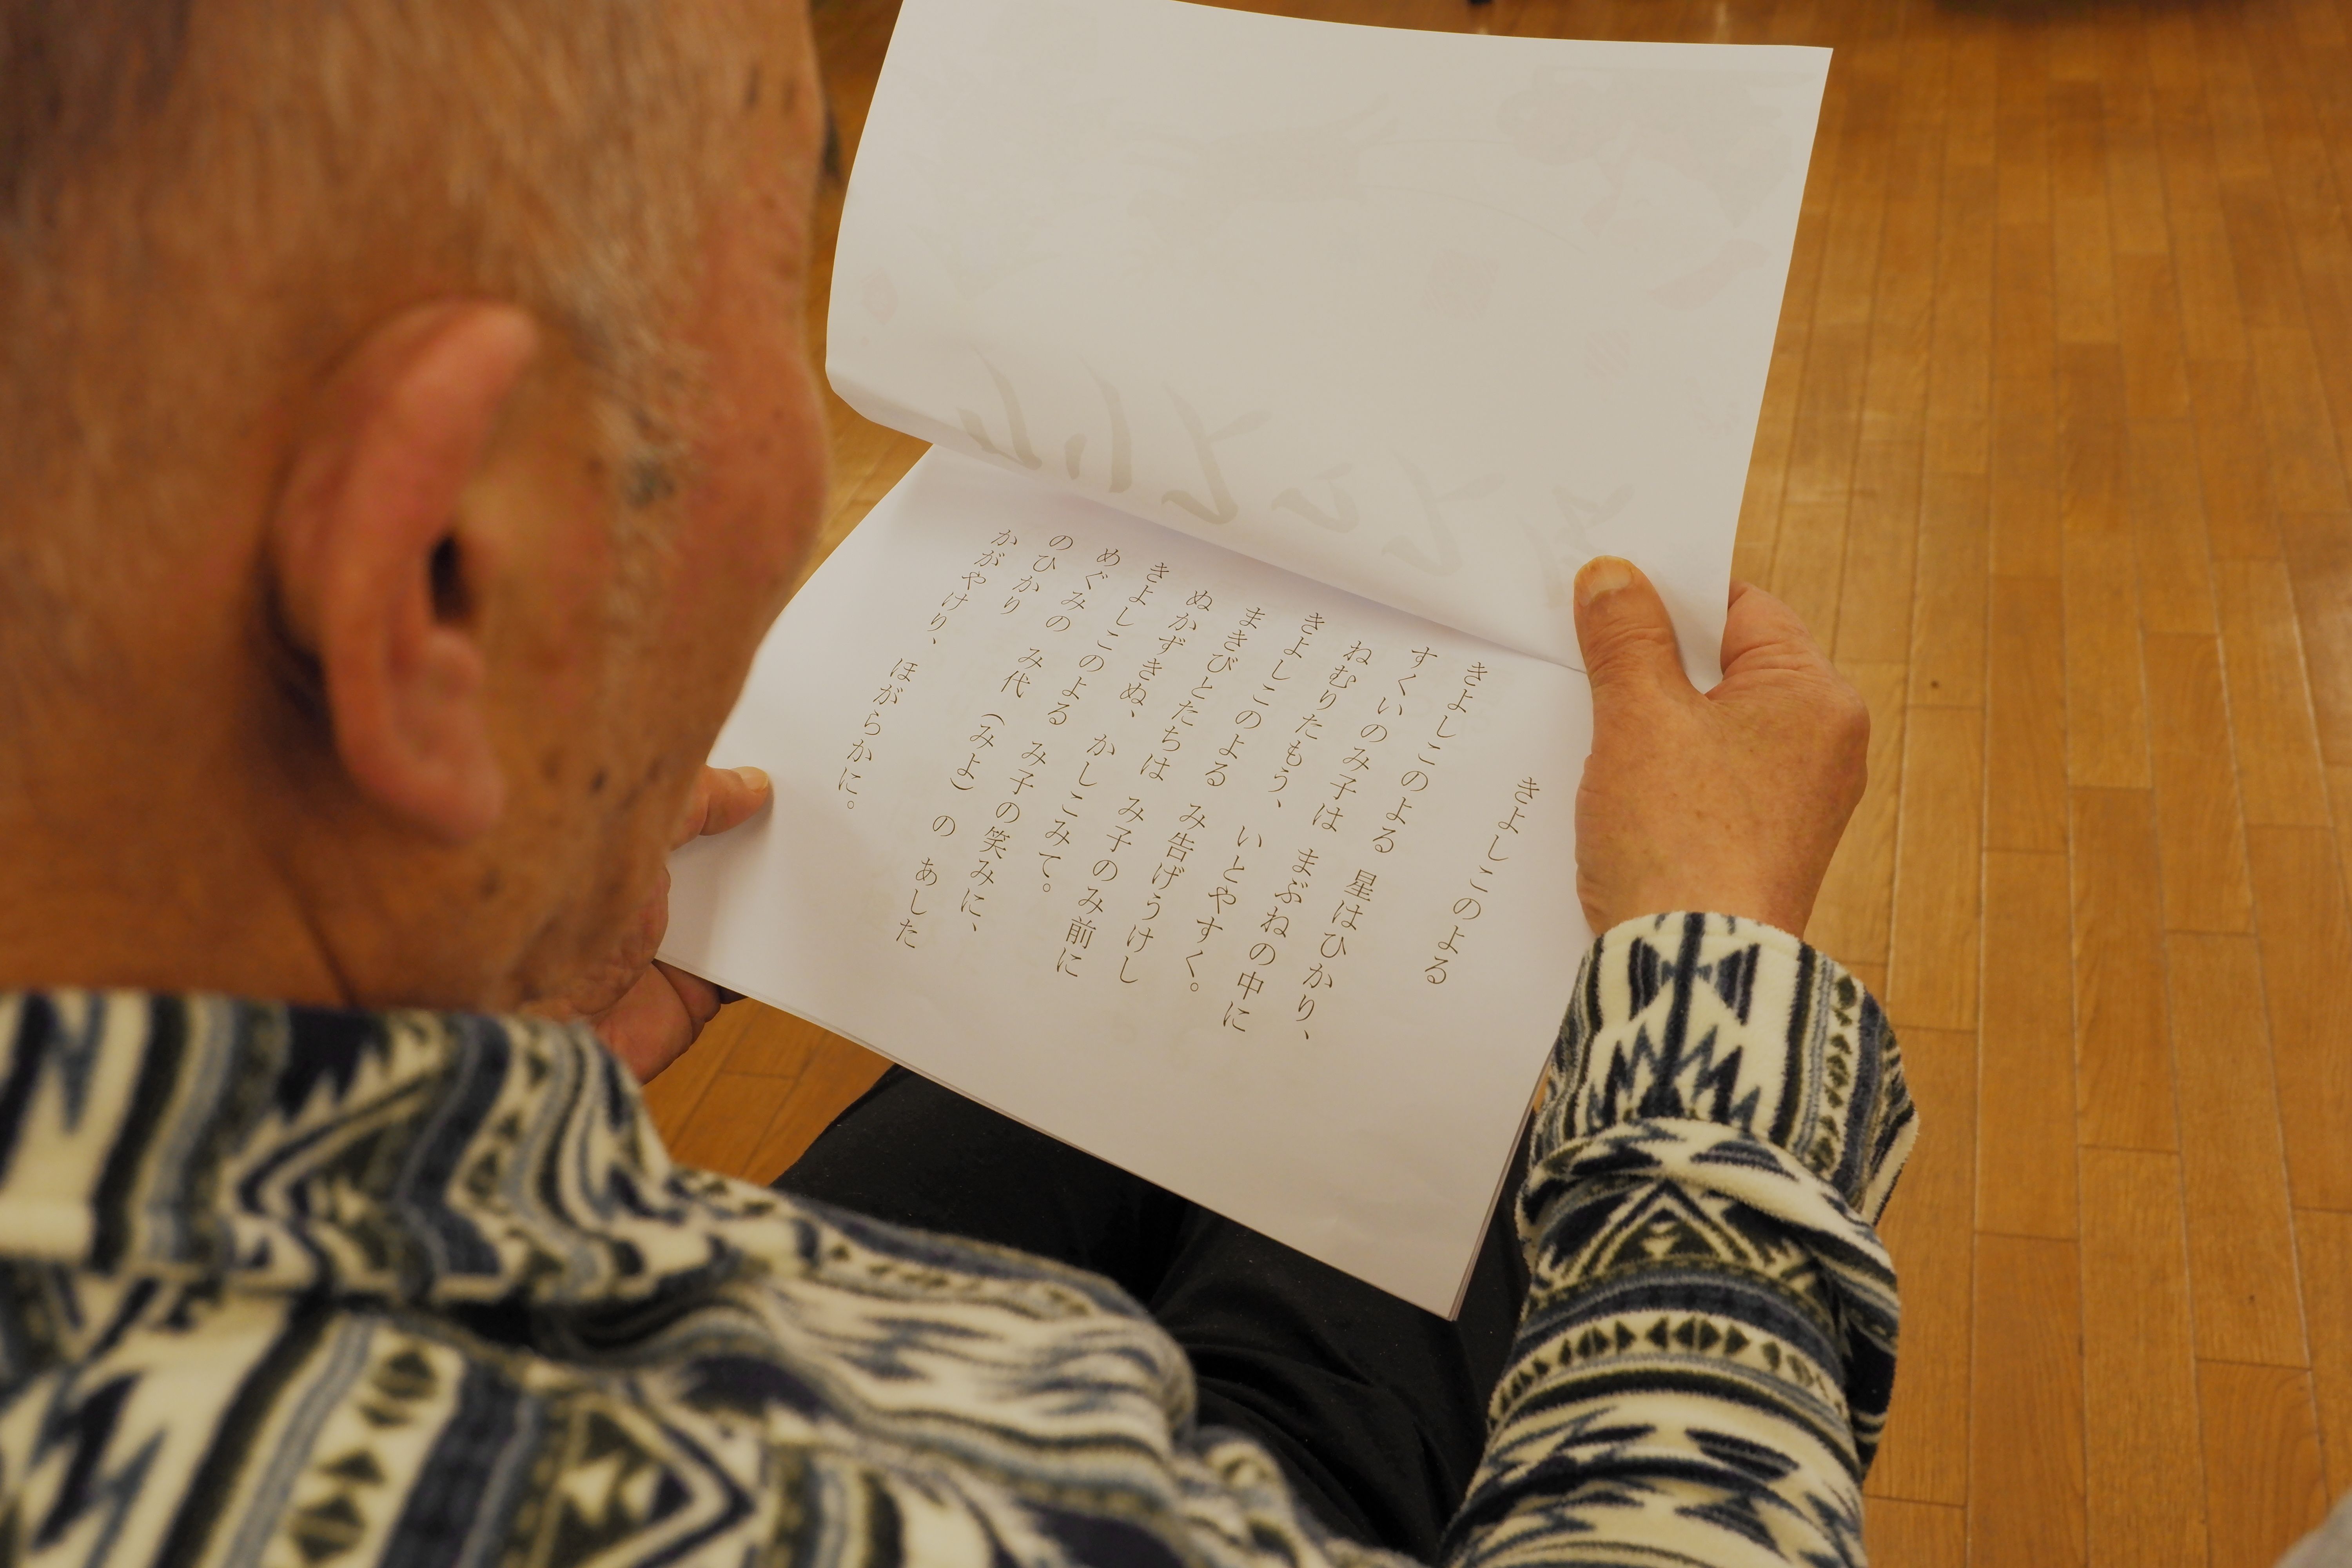 きよしこのよる
きよしこのよる 星はひかり、
すくいのみ子は まぶねの中に
ねむりたもう、 いとやすく。
きよしこのよる み告げうけし
まきびとたちは み子のみ前に
ぬかずきぬ、 かしこみて。
きよしこのよる み子の笑みに、
めぐみの み代 (みよ) の あした
のひかり
かがやけり、 ほがらかに。